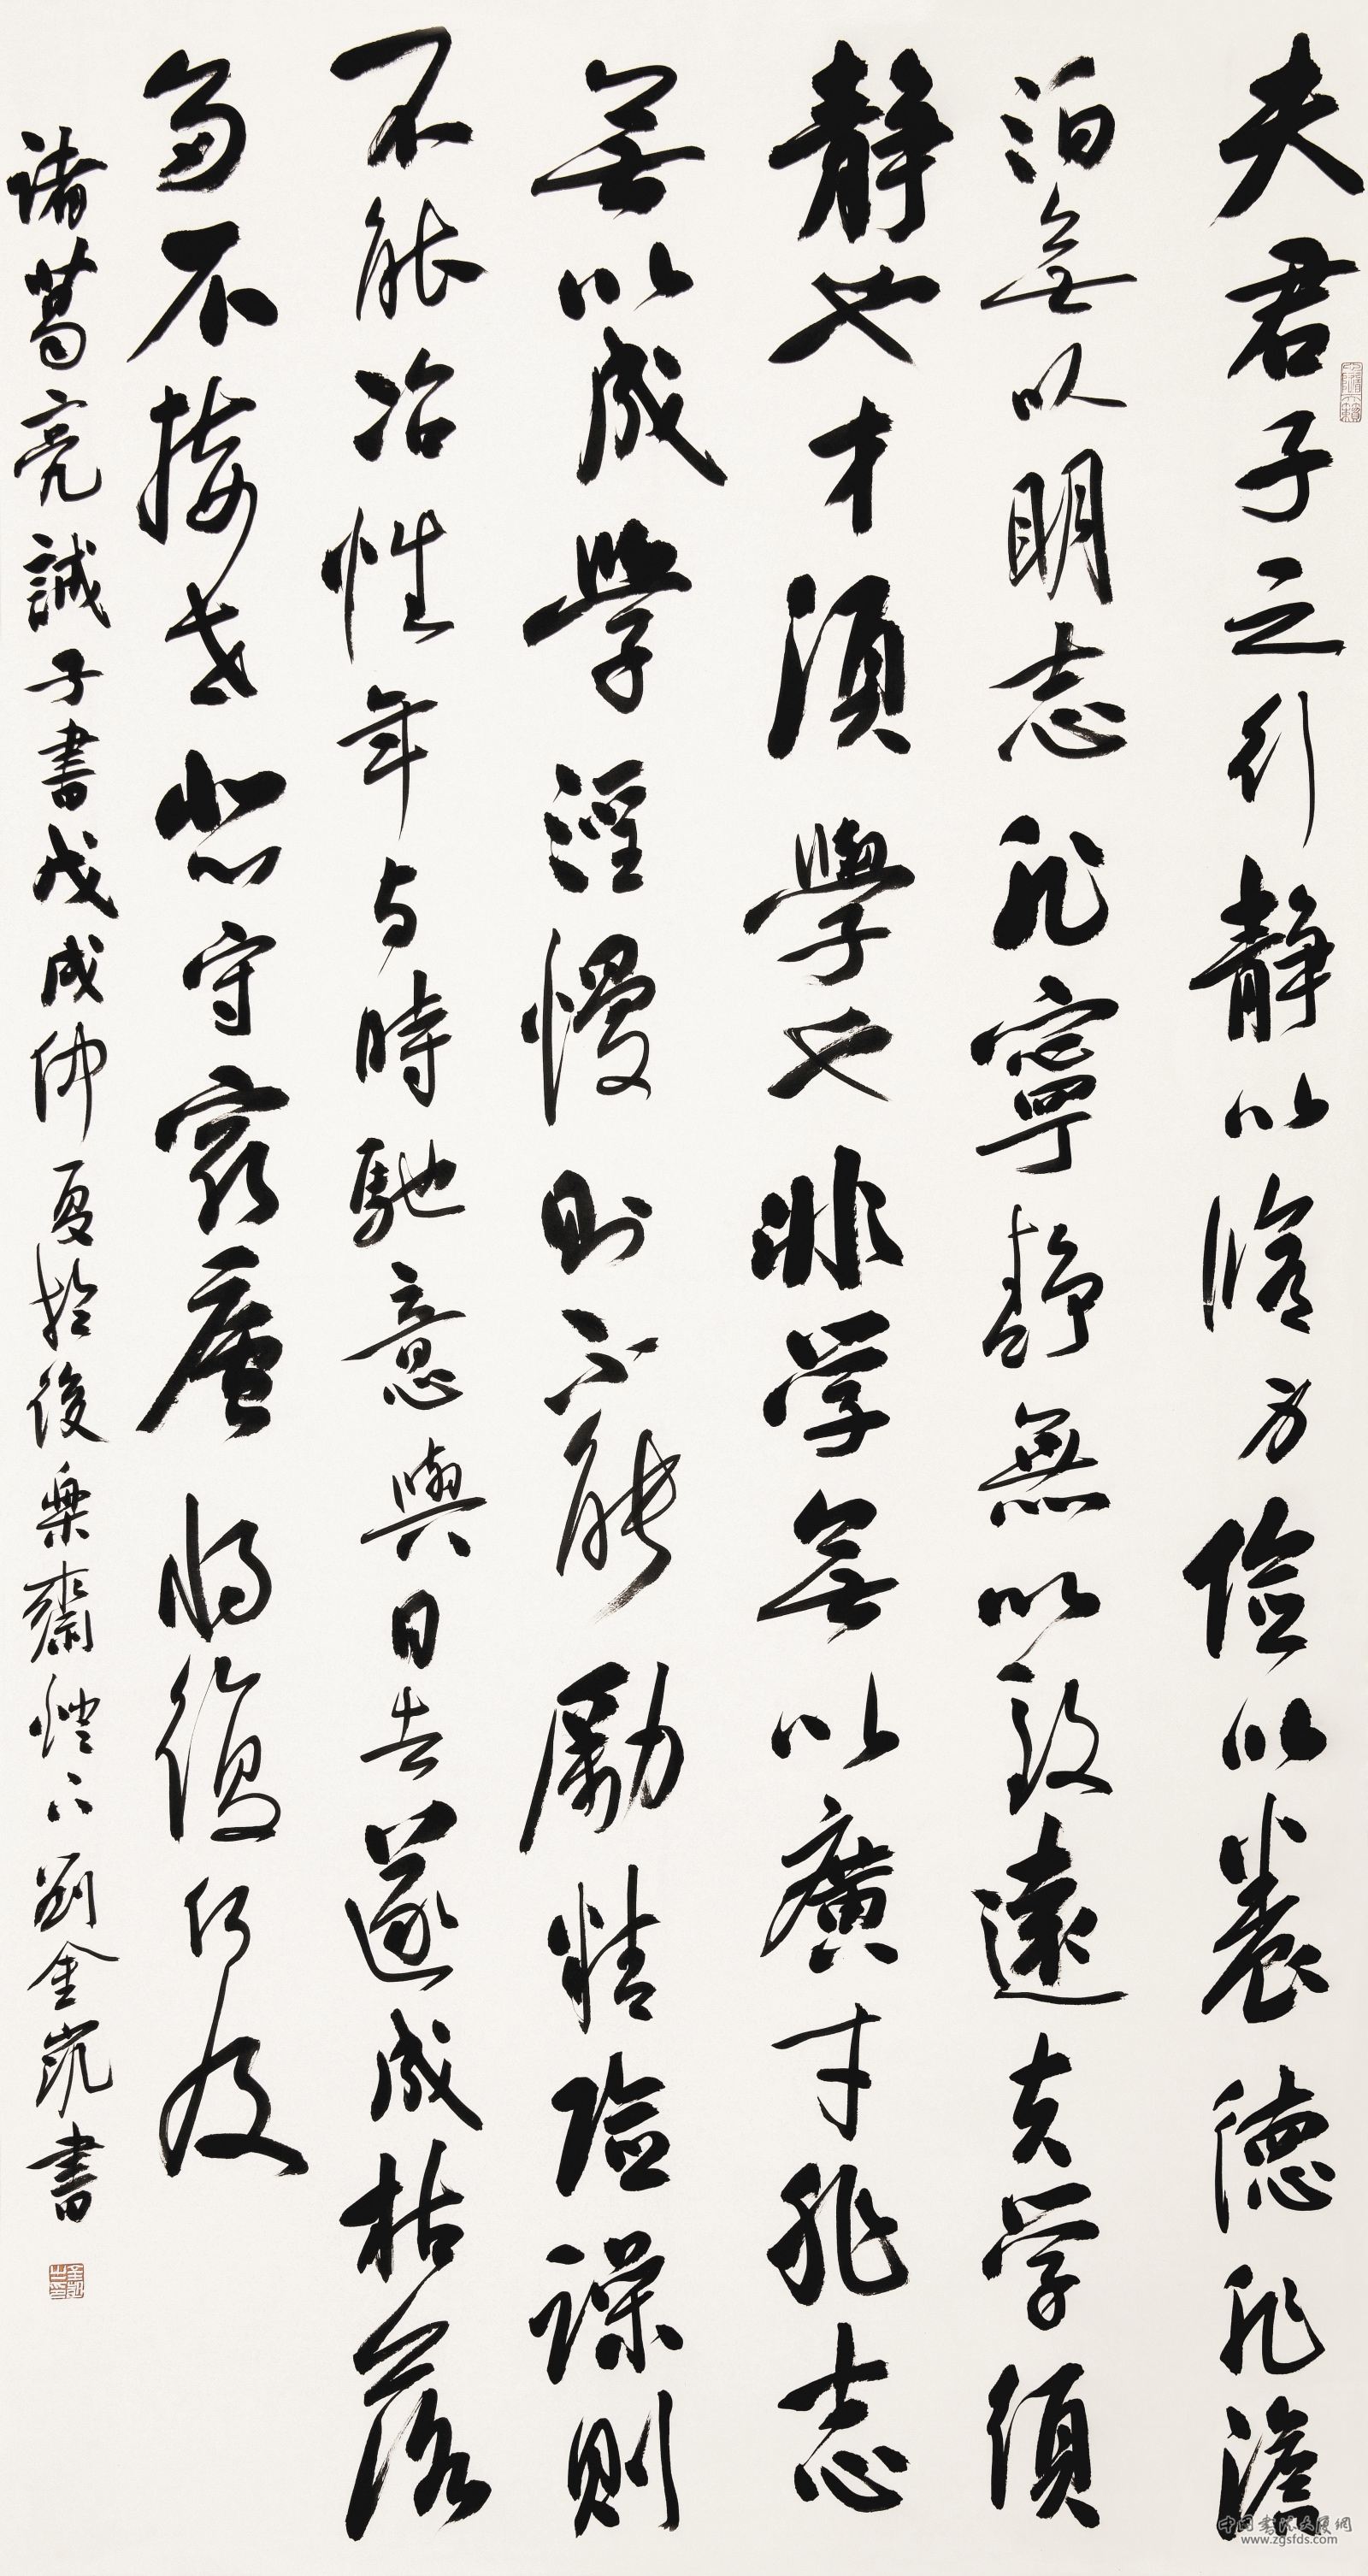 夫君子之行靜以脩身儉以養德非澹
泊無以明志非寧靜無以致遠夫學須
靜也才須學也非学無以廣才非志
無以成學淫慢則不能勵精險躁則
不能冶性年与時馳意與日去遂成枯落
多不接世悲守窮廬將復何及
諸葛亮誡子書戊戌仲夏於後樂齋燈下劉金凱書
中国書法大厦網
www.zgsfds.com